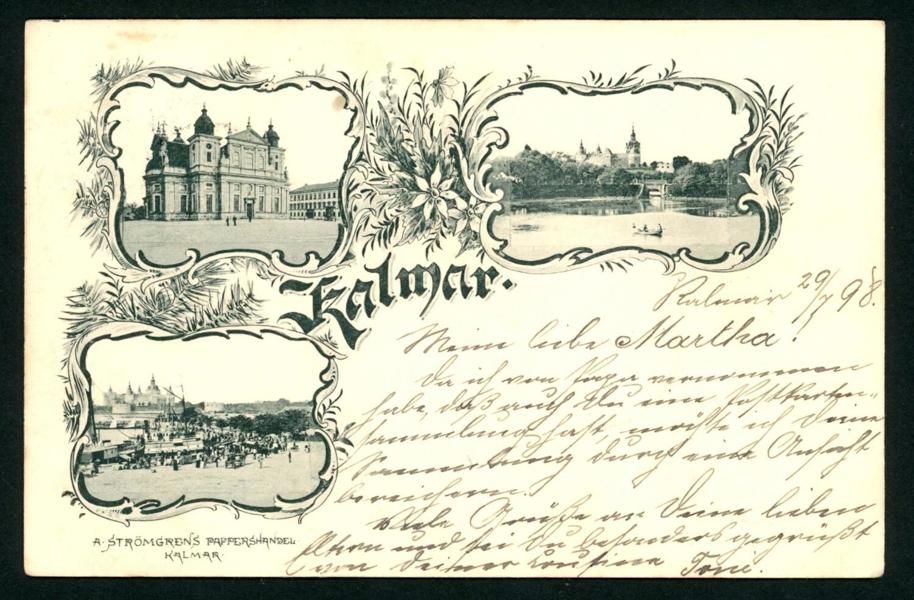 Kalmar.
Kalmar 29/7 98.
Meine liebe Martha!
Da ich von Papa vernommen
habe, daß auch Du eine Postkarten-
sammlung hast, möchte ich Deine
Sammlung durch eine Ansicht
bereichern.
Viele Grüße an Deine lieben
Eltern und sei Du besonders gegrüßt
von Deiner Cousine Toni.
A. STRÖMGRENS PAPPERSHANDEL
KALMAR.